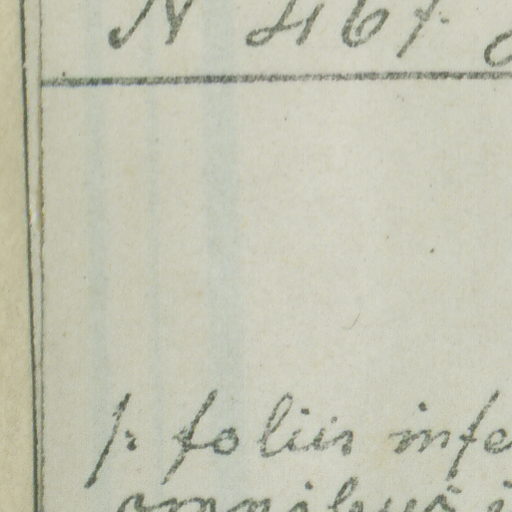 N 2467.
f. foliis infe
omnibus i